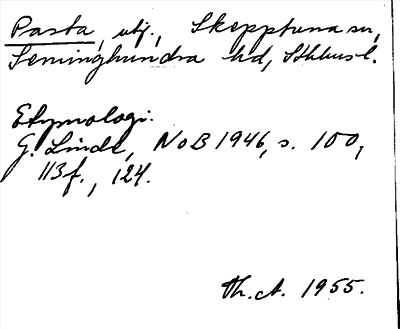 Pasta, utj., Skepptuna sn,
Seminghundra hd, Sthlms l.
Etymologi:
G. Linde, NoB 1946, s. 100,
113f., 124.
Th. A. 1955.